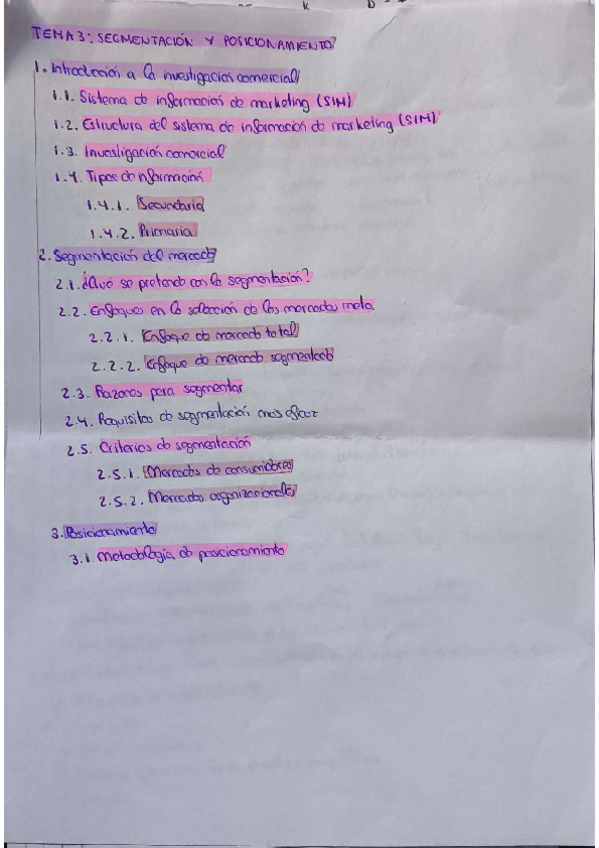 TEMA 3: SEGMENTACIÓN Y POSICIONAMIENTO
1. Introducción a la investigación comercial
1.1. Sistema de información de marketing (SIM)
1.2. Estructura del sistema de información de marketing (SIM)
1.3. Investigación comercial
1.4. Tipos de información
1.4.1. Secundaria
1.4.2. Primaria
2. Segmentación del mercado
2.1. ¿Qué se pretende con la segmentación?
2.2. Enfoques en la selección de los mercados meta
2.2.1. Enfoque de mercado total
2.2.2. Enfoque de mercado segmentado
2.3. Razones para segmentar
2.4. Requisitos de segmentación más eficaz
2.5. Criterios de segmentación
2.5.1. Mercados de consumidores
2.5.2. Mercados organizacionales
3. Posicionamiento
3.1. Metodología de posicionamiento